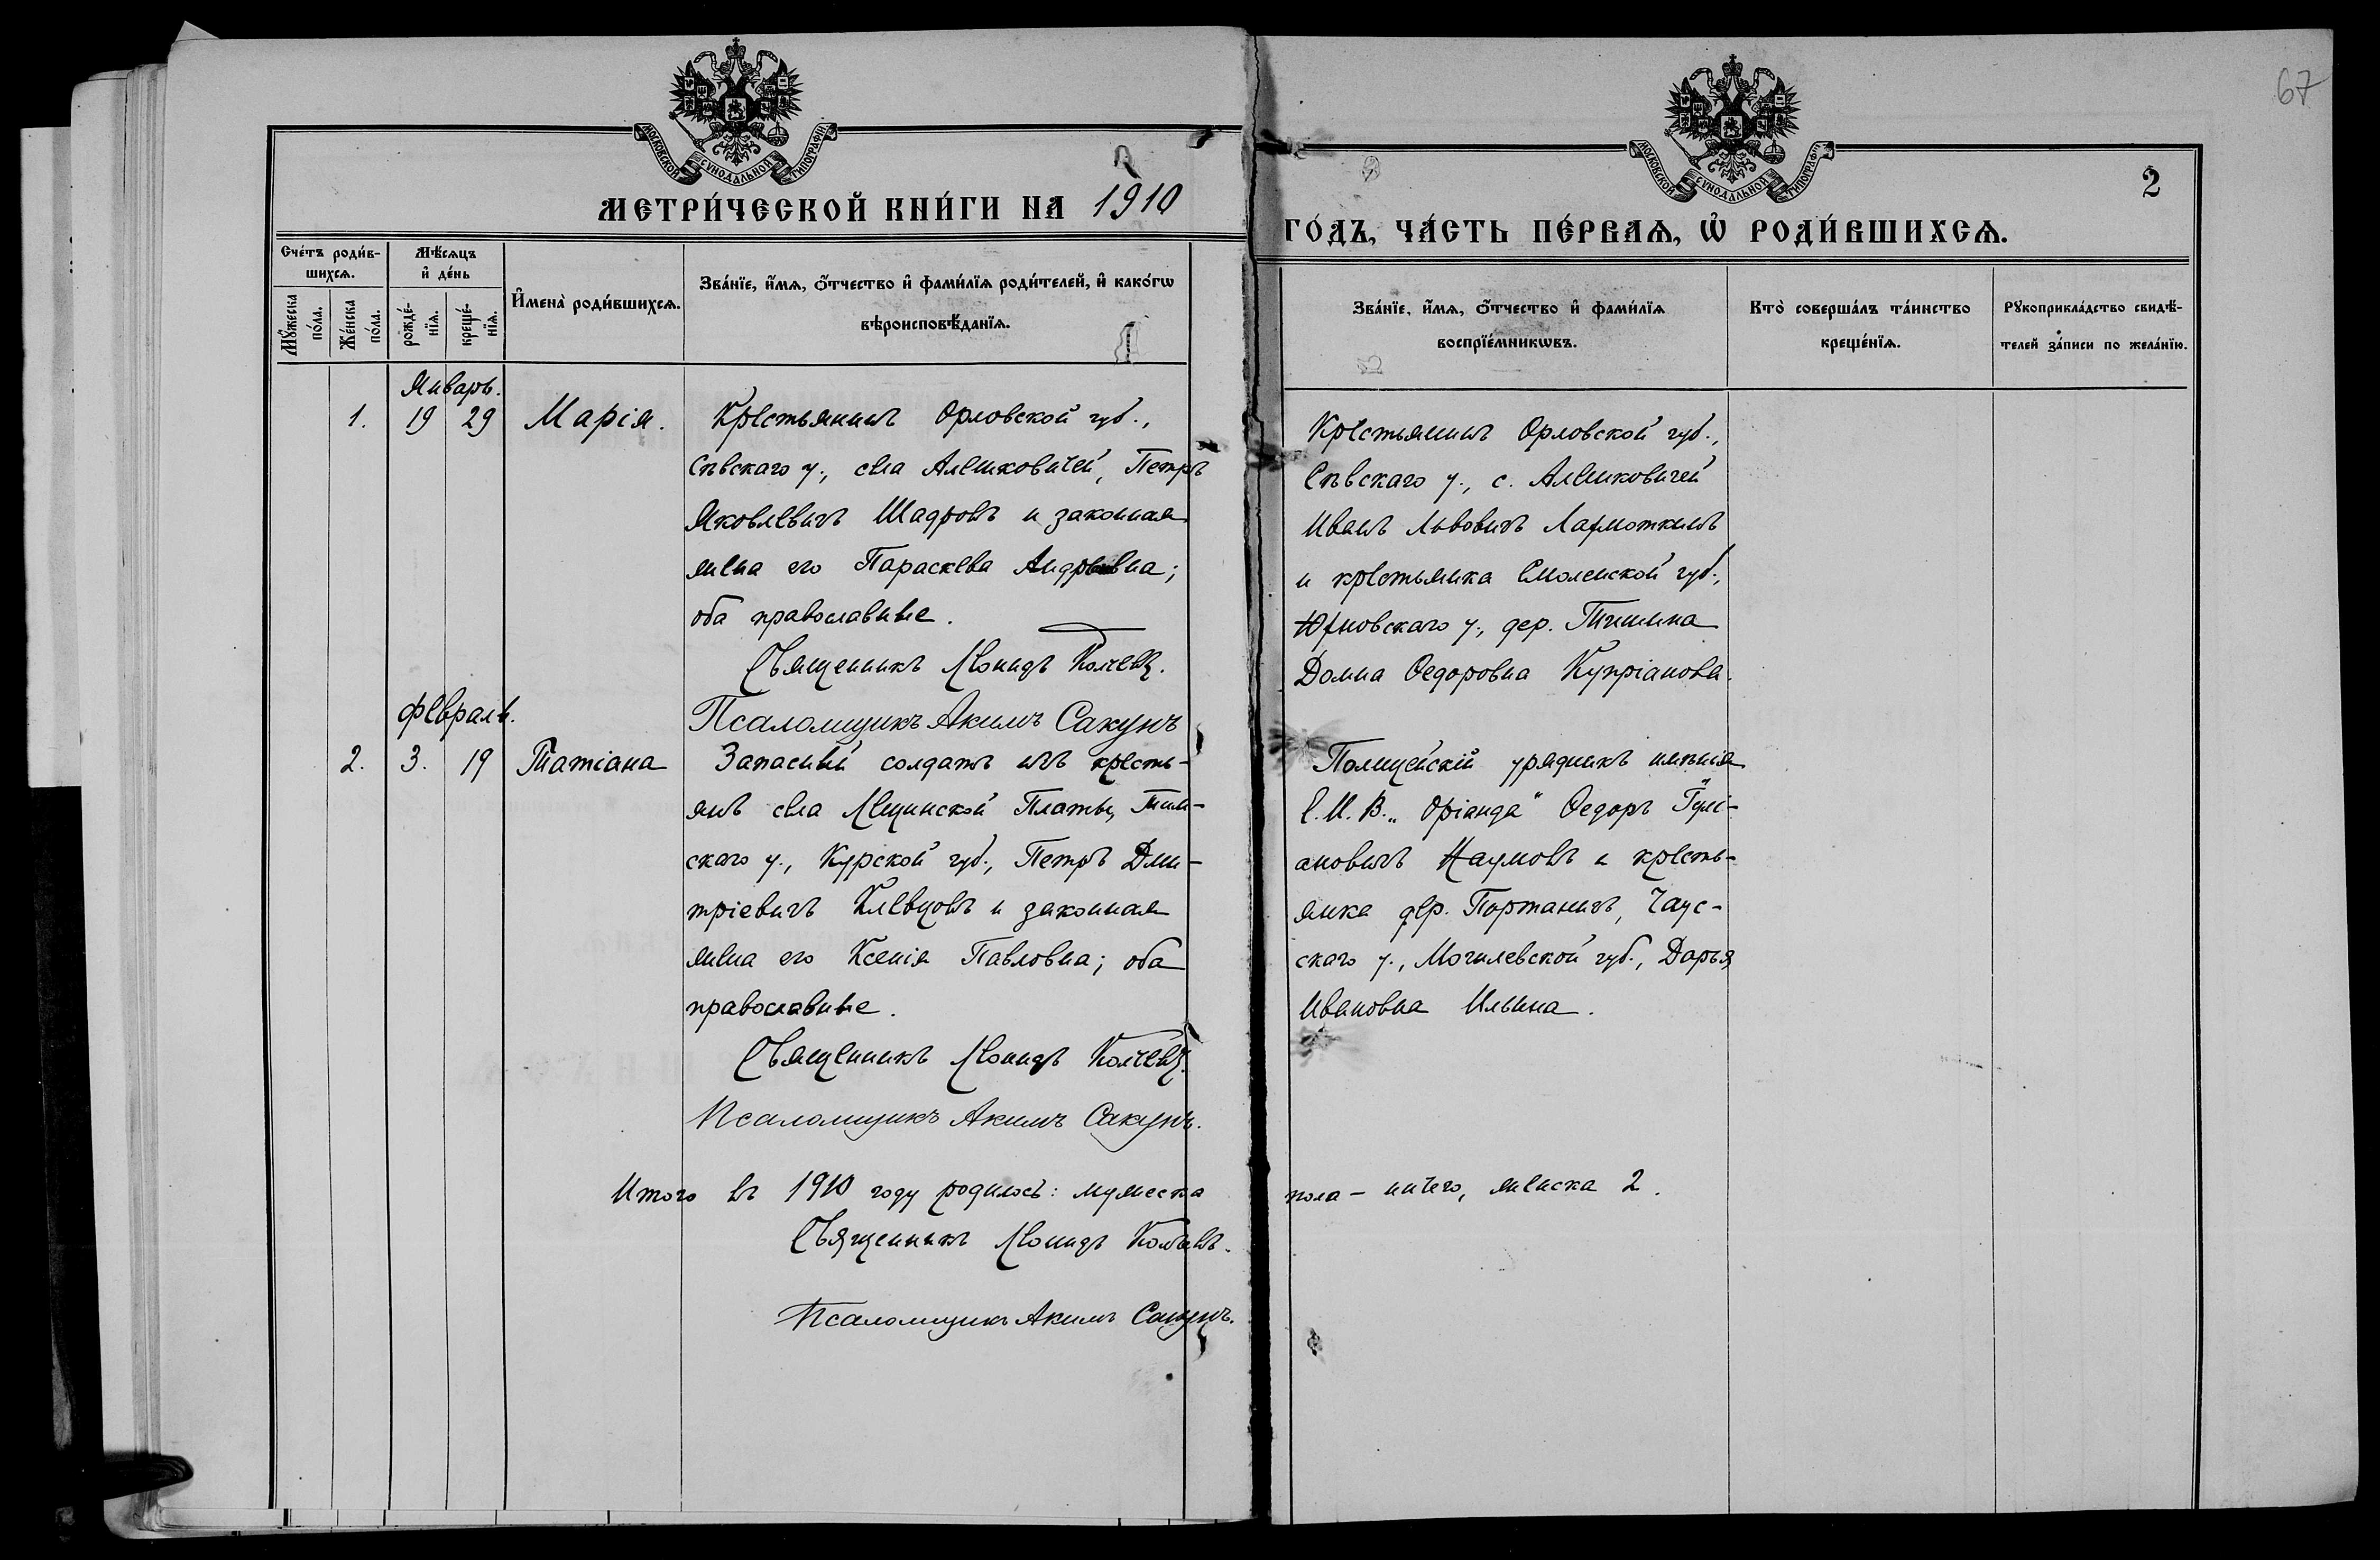 67
МОСКОВСКОЙ СУНОДАЛЬНОЙ ТИПОГРАФІИ
МОСКОВСКОЙ СУНОДАЛЬНОЙ ТИПОГРАФІИ
2
МЕТРИ́ЧЕСКОЙ КНИ́ГИ НА 1910
ГО́ДЪ, ЧА́СТЬ ПЕ́РВАѦ, Ѡ҆ РОДИ́ВШИХСѦ.
Сче́тъ роди́в-
шихсѧ.
Мꙋ́жеска по́ла.
Же́нска по́ла.
Мѣ́сѧцъ
и҆ де́нь
рожде́-
нїѧ.
креще́-
нїѧ.
И҆мена̀ роди́вшихсѧ.
Зва́нїе, и҆́мѧ, ѻ҆́тчество и҆ фами́лїѧ роди́телей, и҆ како́гѡ
вѣроисповѣ́данїѧ.
Зва́нїе, и҆́мѧ, ѻ҆́тчество и҆ фами́лїѧ
воспрїе́мникѡвъ.
Кто̀ соверша́лъ та́инство
креще́нїѧ.
Рꙋкоприкла́дство свидѣ́-
телей за́писи по жела́нїю.
Январь.
1. 19 29 Марія.
Крестьянинъ Орловской губ.,
Сѣвскаго у., села Алешковичей, Петръ
Яковлевичъ Шадровъ и законная
жена его Параскева Андреевна;
оба православные.
Священникъ Леонидъ
Псаломщикъ Акимъ Сакунъ
Крестьянинъ Орловской губ.,
Сѣвскаго у., с. Алешковичей
Иванъ Львовичъ Лармоткинъ
и крестьянка Смоленской губ.,
Юхновскаго у., дер. Тишина
Домна Ѳедоровна Купріанова.
Февраль.
2. 3. 19 Татіана
Запасный солдатъ изъ кресть-
янъ села Лещинской Платы, Тим-
скаго у., Курской губ., Петръ Дми-
тріевичъ Клевцовъ и законная
жена его Ксенія Павловна; оба
православные.
Священникъ Леонидъ
Псаломщикъ Акимъ Сакунъ.
Полицейскій урядникъ имѣнія
Е. И. В. „Оріанда" Ѳедоръ Іулі-
ановичъ Наумовъ и кресть-
янка дер. Портаничъ, Чаус-
скаго у., Могилевской губ., Дарья
Ивановна Ильина.
Итого въ 1910 году родилось: мужеска
пола – ничего, женска 2.
Священникъ Леонидъ
Псаломщикъ Акимъ Сакунъ.